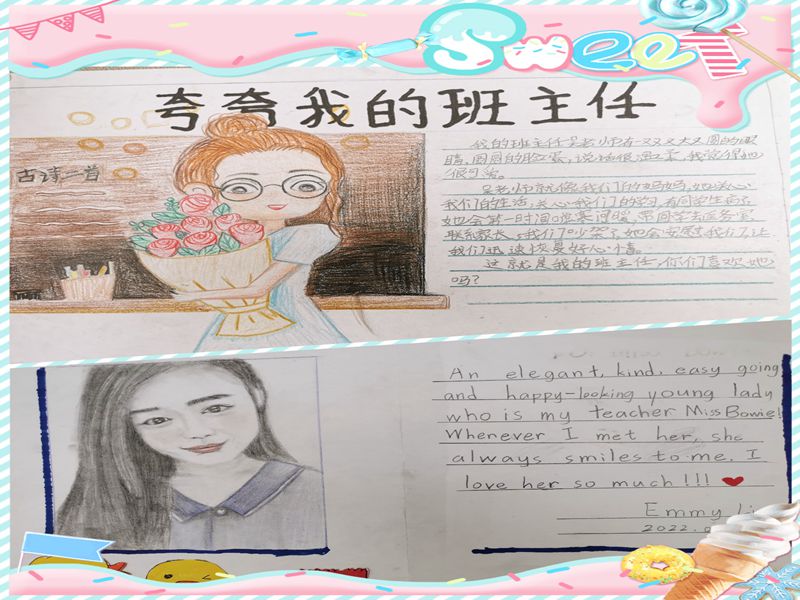 Sweet
夸夸我的班主任
古诗二首
我的班主任吴老师有一双又大又圆的眼
睛,圆圆的脸蛋,说话很温柔,我觉得她
很可爱。
吴老师就像我们的妈妈,她关心
我们的生活,关心我们的学习,有同学生病了
她会第一时间嘘寒问暖,带同学去医务室
联系家长。我们吵架了她会安慰我们,让
我们迅速恢复好心情。
这就是我的班主任,你们喜欢她
吗?
An elegant, kind, easy going
and happy-looking young lady
who is my teacher Miss Bowie!
Whenever I met her, she
always smiles to me. I
love her so much!!!
Emmy Li
2022.